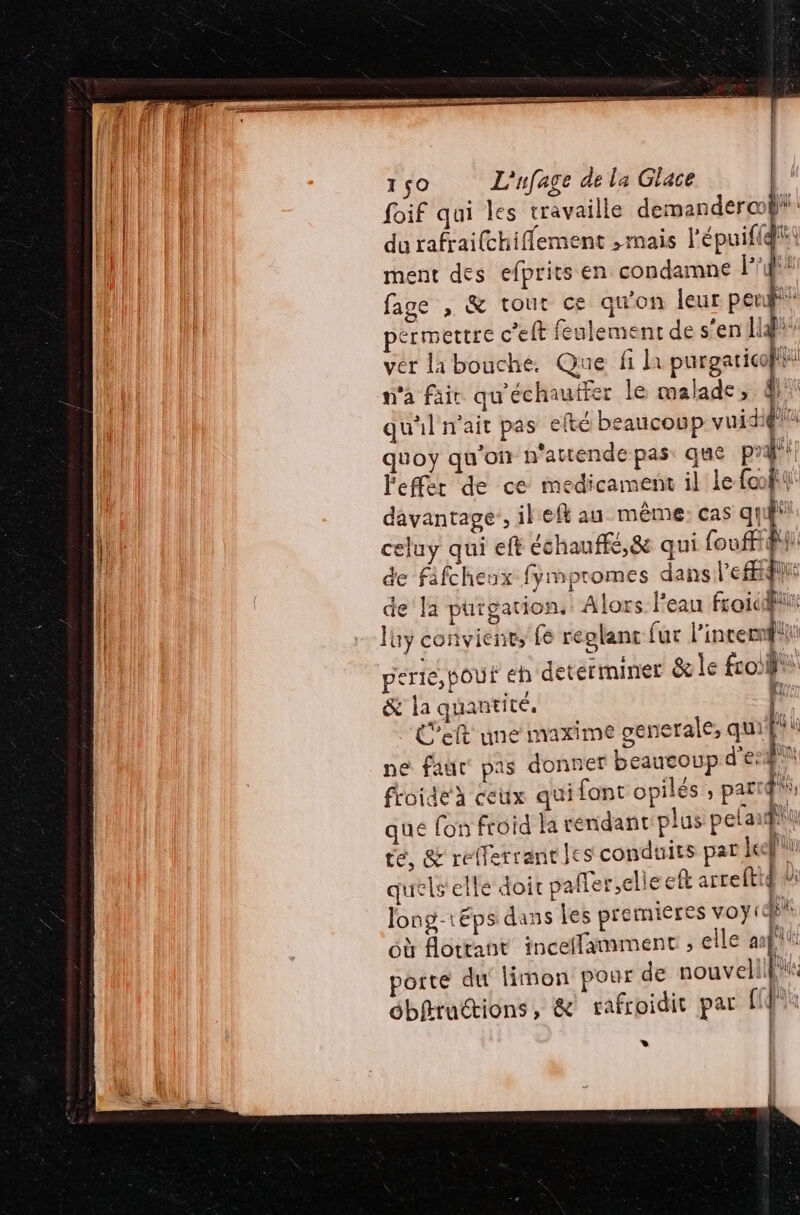 150 L'uſage de la Glace
ſoif qui les travaille demander
du rafraiſchiſſement , mais l'épuiſ
ment des eſprits en condamne l'
ſage , & tout ce qu'on leur
permettre c'eſt ſeulement de s'en
ver la bouche. Que ſi la
n'a fait qu'échauffer le malade,
qu'il n'ait pas eſté beaucoup
quoy qu'on n'attende pas que
l'effet de ce medicament il le
davantage, il eſt au même cas
celuy qui eſt échauffé, & qui
de faſcheux ſymptomes dans
de la purgation. Alors l'eau
luy convient, ſe reglant ſur
perie, pour en determiner & le
& la quantité.
C'eſt une maxime generale,
ne faut pas donner beaucoup
froide à ceux qui ſont opilés ,
que ſon froid la rendant plus
te, & reſſerrant les conduits par
quels elle doit paſſer, elle eſt
long-tẽps dans les premieres
où flottant inceſſamment , elle
porte du limon pour de
obſtructions, & rafroidit par